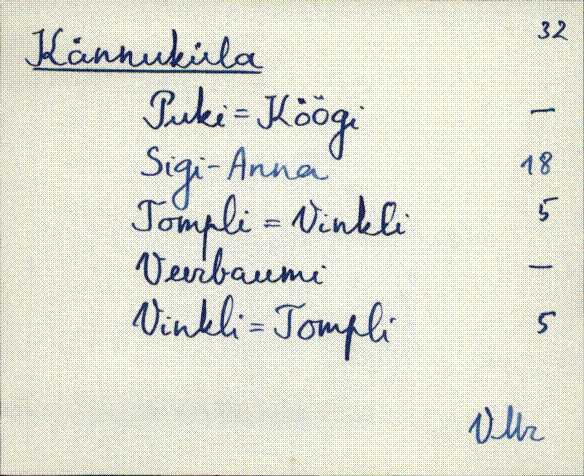 32
Kännuküla
Puki = Köögi —
Sigi-Anna 18
Tompli = Vinkli 5
Veerbaumi —
Vinkli = Tompli 5
VMr